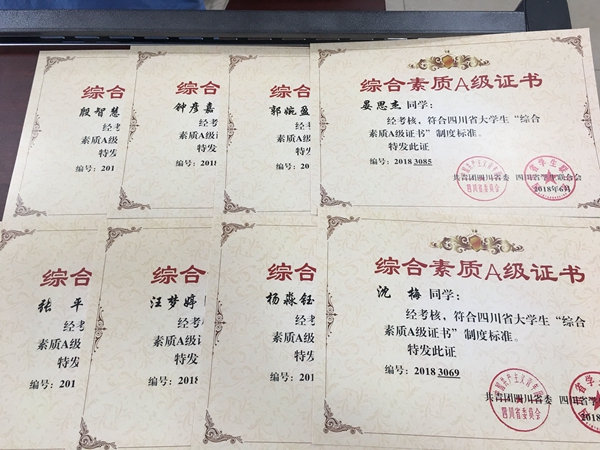 综合
殷智慧
经考
素质A级
特发
编号：201
综合
钟彦嘉
经考
素质A级
特发
编号：2018
综合
郭婉盈
经考
素质A级
特发
编号：2018
综合素质A级证书
晏思杰 同学：
经考核，符合四川省大学生“综合
素质A级证书”制度标准。
特发此证
编号：2018 3085
共青团四川省委 四川省学生联合会
2018年6月
综合
张 平
经考
素质A级
特发
编号：201
综合
汪梦婷
经考
素质A级证
特发
编号：2018
综合
杨淼钰
经考
素质A级
特发
编号：2018
综合素质A级证书
沈 梅 同学：
经考核，符合四川省大学生“综合
素质A级证书”制度标准。
特发此证
编号：2018 3069
共青团四川省委 四川省
2018
四川省委员会